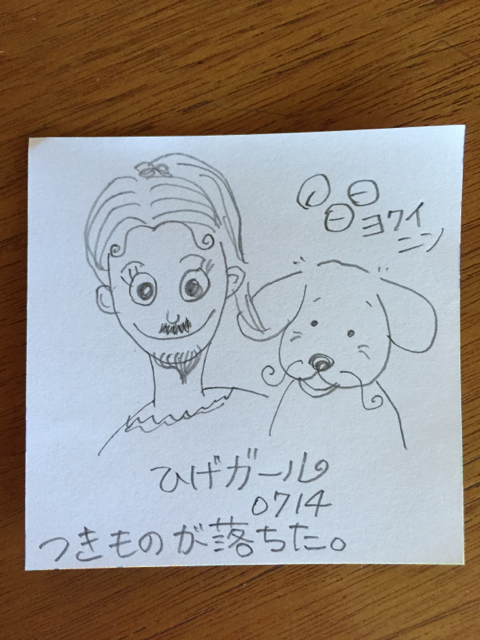 ヨワイ
ニン
ひげガール
0714
つきものが落ちた。